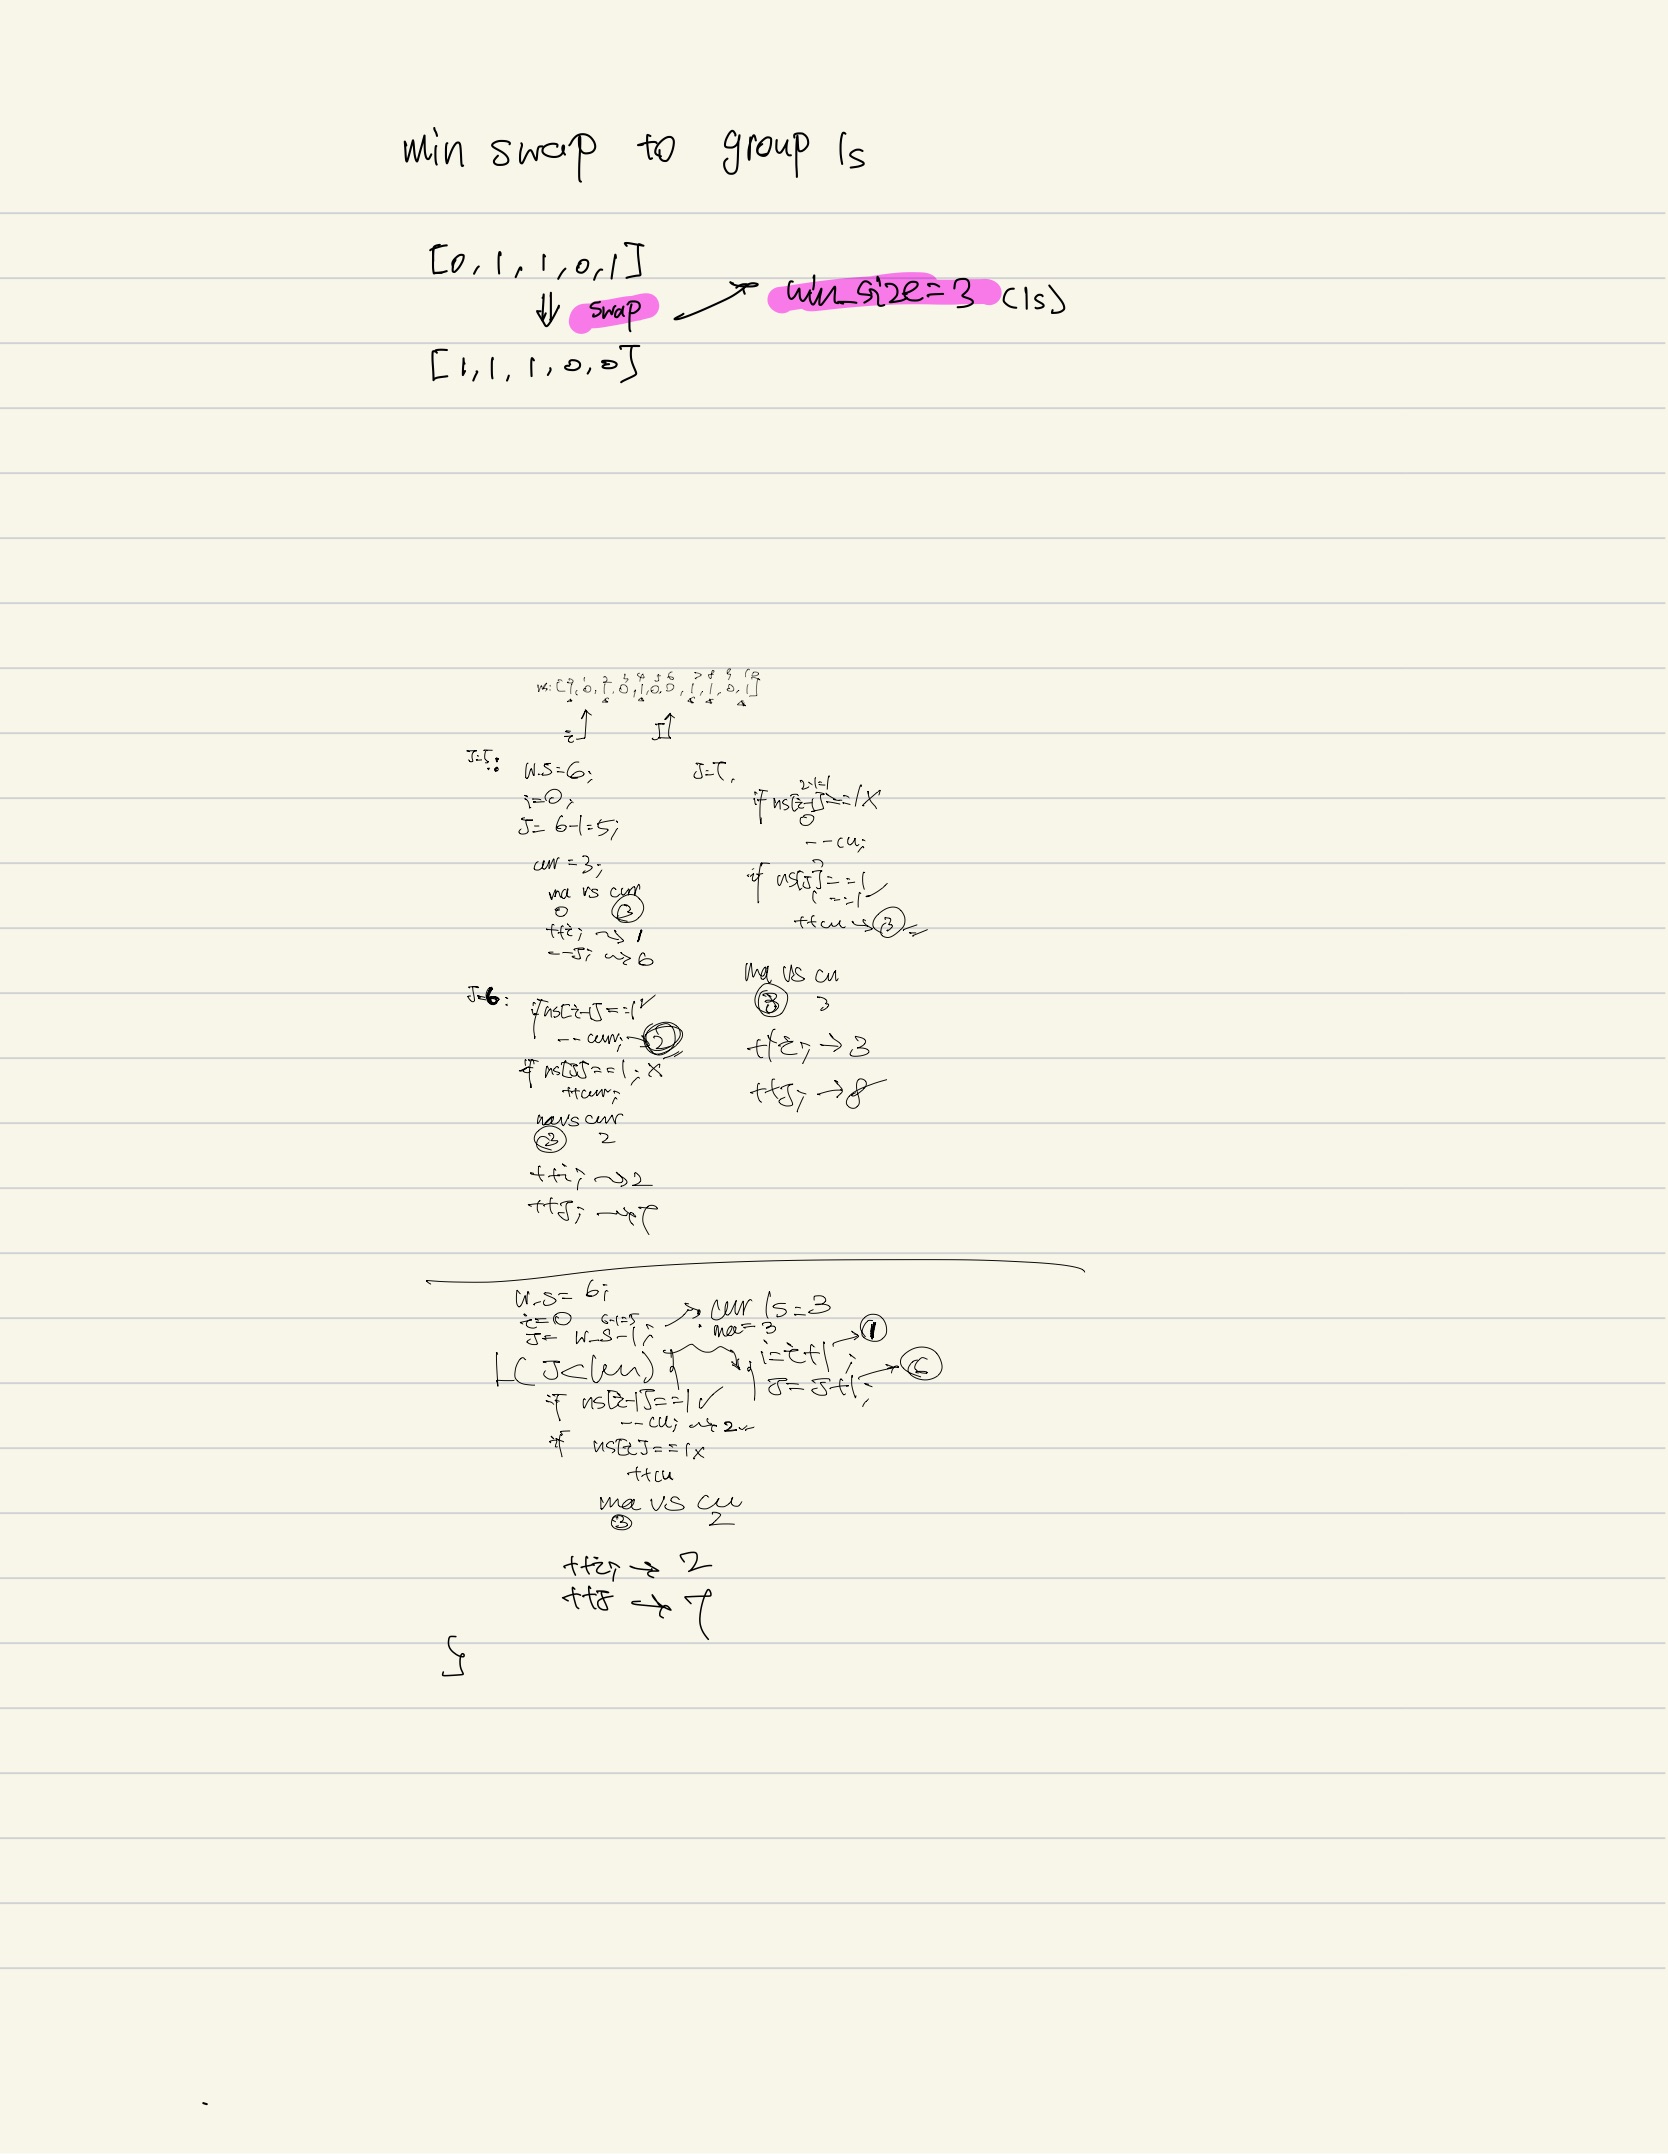 min swap to group 1s
[0, 1, 1, 0, 1]
swap
win_size = 3 (1s)
[1, 1, 1, 0, 0]
0 1 2 3 4 5 6 7 8 9 10
ns: [1, 0, 1, 0, 1, 0, 0, 1, 1, 0, 1]
i J
J=5:
W.S=6;
i=0;
J= 6-1=5;
curr = 3;
ma vs curr
0 3
++i; → 1
--J; → 6
J=6:
if ns[i-1]==1 ✓
--curr; → 2
if ns[J]==1; X
++curr;
ma vs curr
3 2
++i; → 2
++J; → 7
J=7,
2-1=1
if ns[i-1]==1 X
0
--cu;
7
if ns[J]==1
1==1 ✓
++cu → 3
ma vs cu
3 3
++i; → 3
++J; → 8
W_S= 6;
i=0 6-1=5
J= W_S-1;
→ curr 1s=3
ma= 3
L( J<len) {
i=i+1; → 1
J= J+1; → 6
if ns[i-1]==1 ✓
--cu; → 2
if ns[i]==1 X
++cu
ma vs cu
3 2
++i; → 2
++J → 7
}